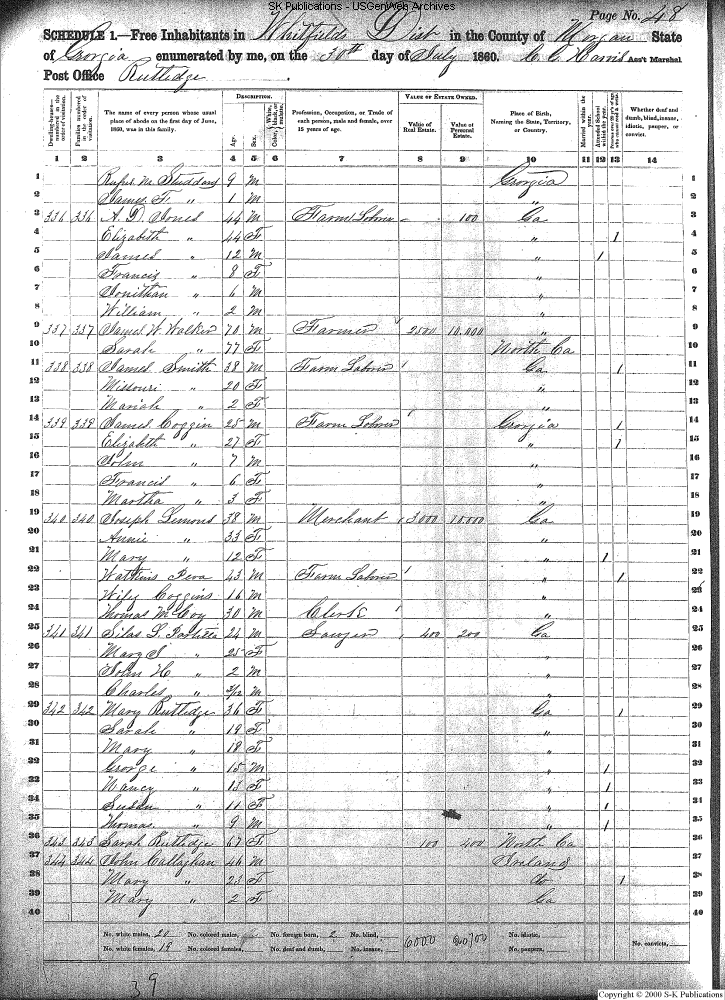 SK Publications - USGenWeb Archives
Page No. 48
SCHEDULE 1.—Free Inhabitants in Whitfields Dist in the County of Morgan State
of Georgia enumerated by me, on the 30th day of July 1860. C. C. Harris Ass't Marshal
Post Office Rutledge.
Dwelling-houses—numbered in the order of visitation. Families numbered in the order of visitation. The name of every person whose usual place of abode on the first day of June, 1860, was in this family. DESCRIPTION. Age. Sex. Color, White, black, or mulatto. Profession, Occupation, or Trade of each person, male and female, over 15 years of age. VALUE OF ESTATE OWNED. Value of Real Estate. Value of Personal Estate. Place of Birth, Naming the State, Territory, or Country. Married within the year. Attended School within the year. Persons over 20 y'rs of age who cannot read & write. Whether deaf and dumb, blind, insane, idiotic, pauper, or convict.
1 2 3 4 5 6 7 8 9 10 11 12 13 14
1 Rufus M. Studdard 9 M Georgia 1
2 James F. " 1 M " 2
3 336 336 A. D. Jones 44 M Farm Laborer - 100 Ga 3
4 Elizabeth " 44 F " 1 4
5 James " 12 M " 1 5
6 Francis " 8 F " 6
7 Jonithan " 6 M " 7
8 William " 2 M " 8
9 337 337 James W. Walker 70 M Farmer 2500 10,000 " 9
10 Sarah " 77 F North Ca 10
11 338 338 James Smith 38 M Farm Laborer Ga 1 11
12 Missouri " 20 F " 12
13 Mariah " 2 F " 13
14 339 339 James Coggin 25 M Farm Laborer Georgia 1 14
15 Elizabeth " 27 F " 1 15
16 John " 7 M " 16
17 Francis " 6 F " 17
18 Martha " 3 F " 18
19 340 340 Joseph Lemons 38 M Merchant 3000 10,000 Ga 19
20 Annie " 33 F " 20
21 Mary " 12 F " 1 21
22 Watkins 43 M Farm Laborer " 1 22
23 Wily Coggins 16 M " 23
24 Thomas McCoy 30 M Clerk " 24
25 341 341 Silas L. 24 M Sawyer 400 200 Ga 25
26 Mary S " 25 F " 26
27 John H " 2 M " 27
28 Charles " M " 28
29 342 342 Mary Rutledge 36 F Ga 1 29
30 Sarah " 19 F " 30
31 Mary " 18 F " 31
32 George " 15 M " 1 32
33 Nancy " 13 F " 1 33
34 Susan " 11 F " 1 34
35 Thomas " 9 M " 1 35
36 343 343 Sarah Rutledge 67 F 100 400 North Ca 36
37 344 344 John Callaghan 46 M Ireland 37
38 Mary " 23 F do 1 38
39 Mary " 2 F Ga 39
40 40
No. white males, 20 No. colored males, No. foreign born, 2 No. blind, 6000 20700 No. idiotic,
No. white females, 19 No. colored females, No. deaf and dumb, No. insane, No. paupers, No. convicts,
39
Copyright © 2000 S-K Publications